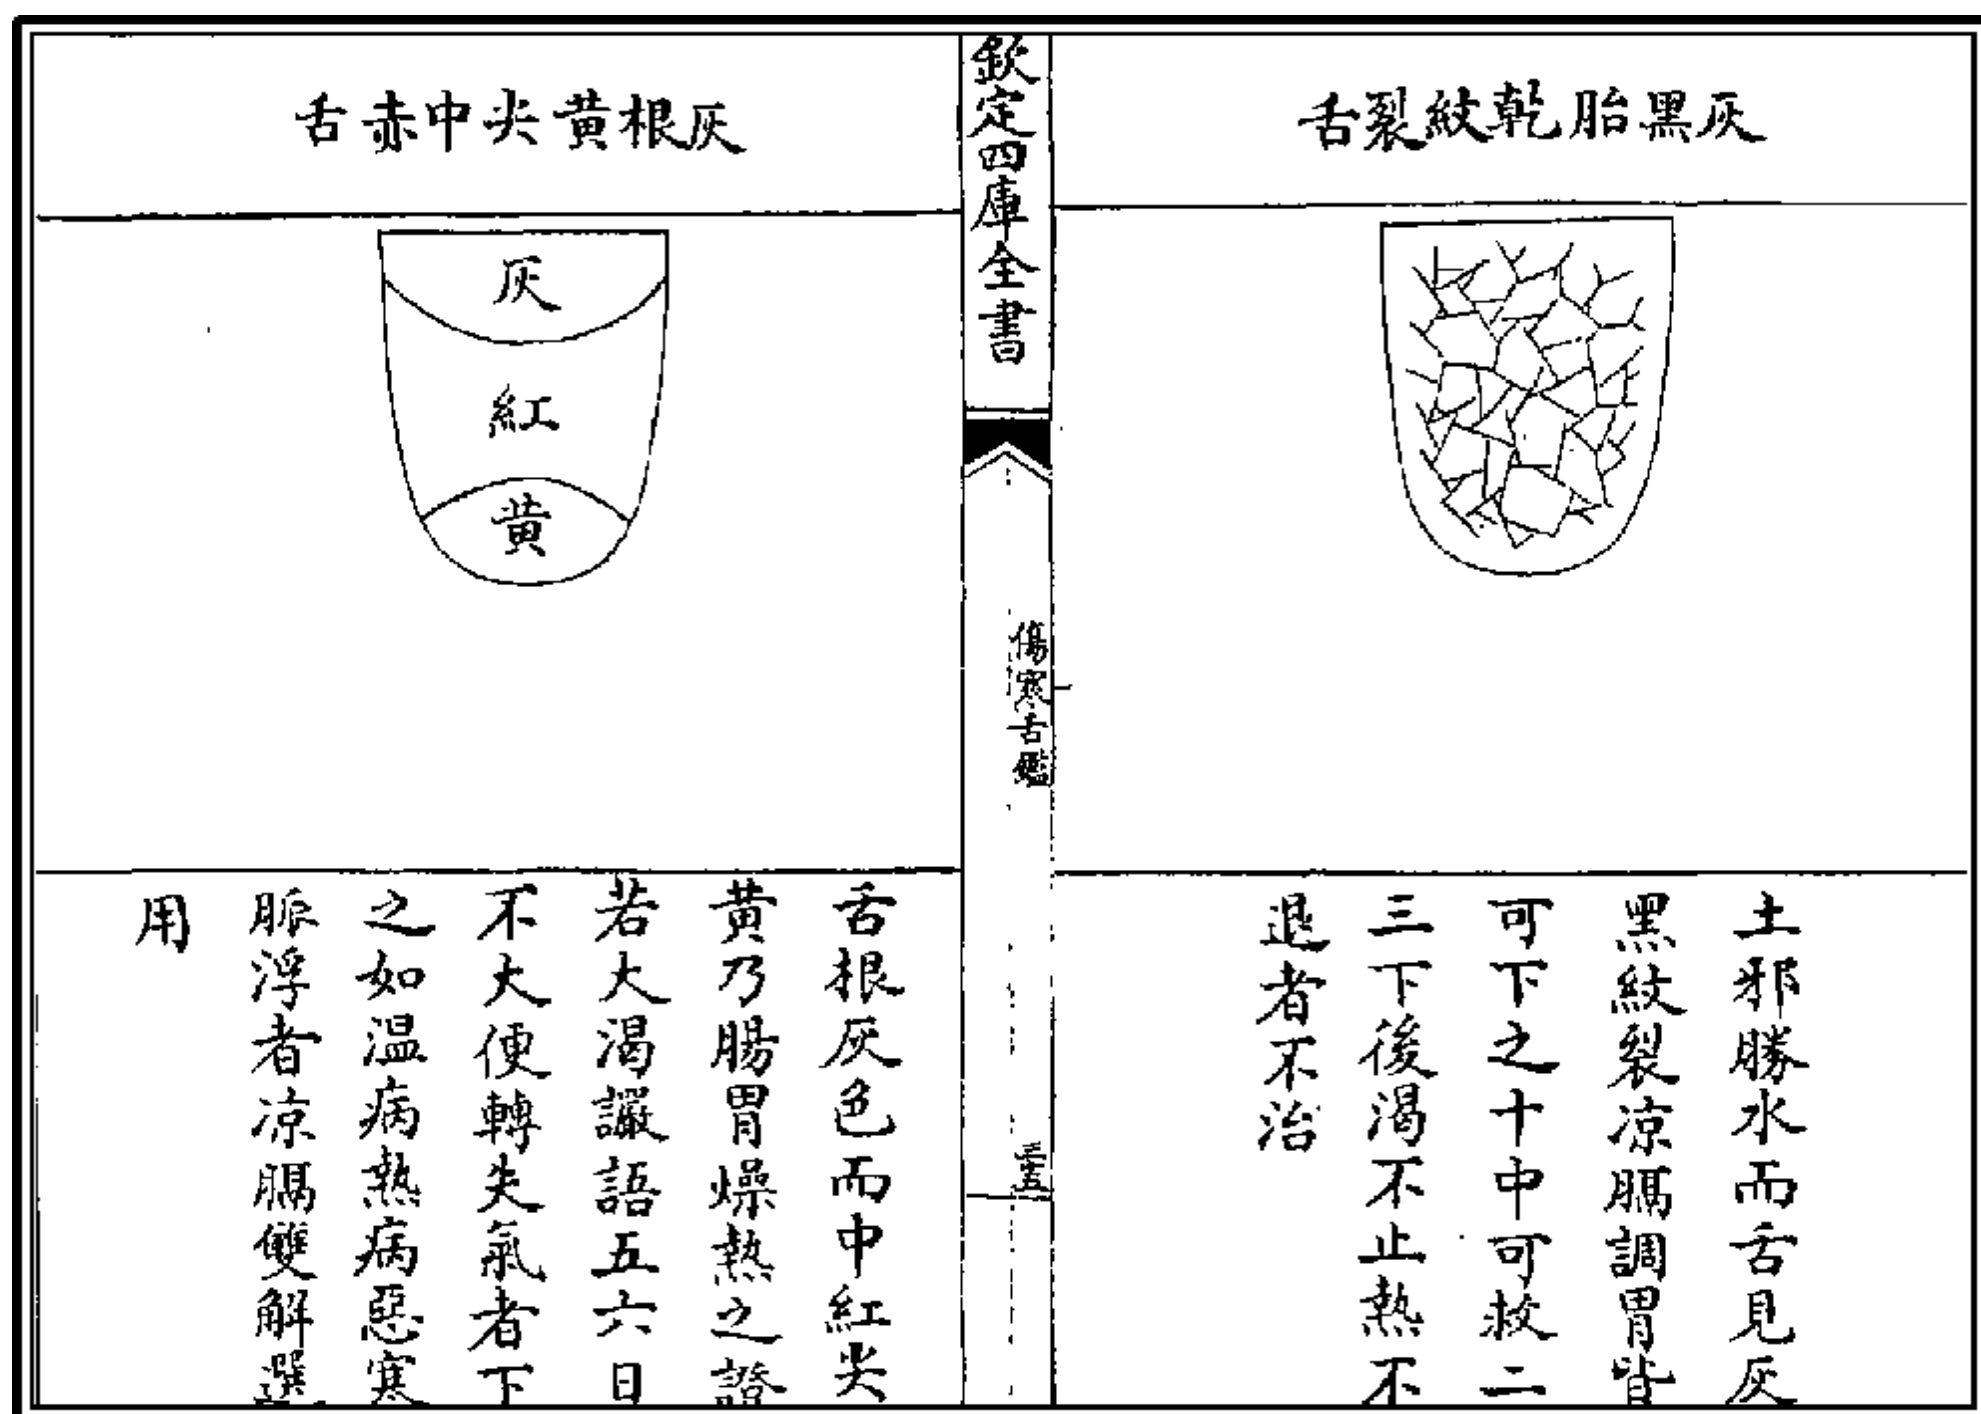 灰黑胎乾紋裂舌
土邪勝水而舌見灰
黑紋裂凉膈調胃皆
可下之十中可救二
三下後渴不止熱不
退者不治
欽定四庫全書
傷寒舌鑑
三五
灰根黃尖中赤舌
灰
紅
黄
舌根灰色而中紅尖
黄乃腸胃燥熱之證
若大渴讝語五六日
不大便轉失氣者下
之如温病熱病惡寒
脈浮者凉膈雙解選
用